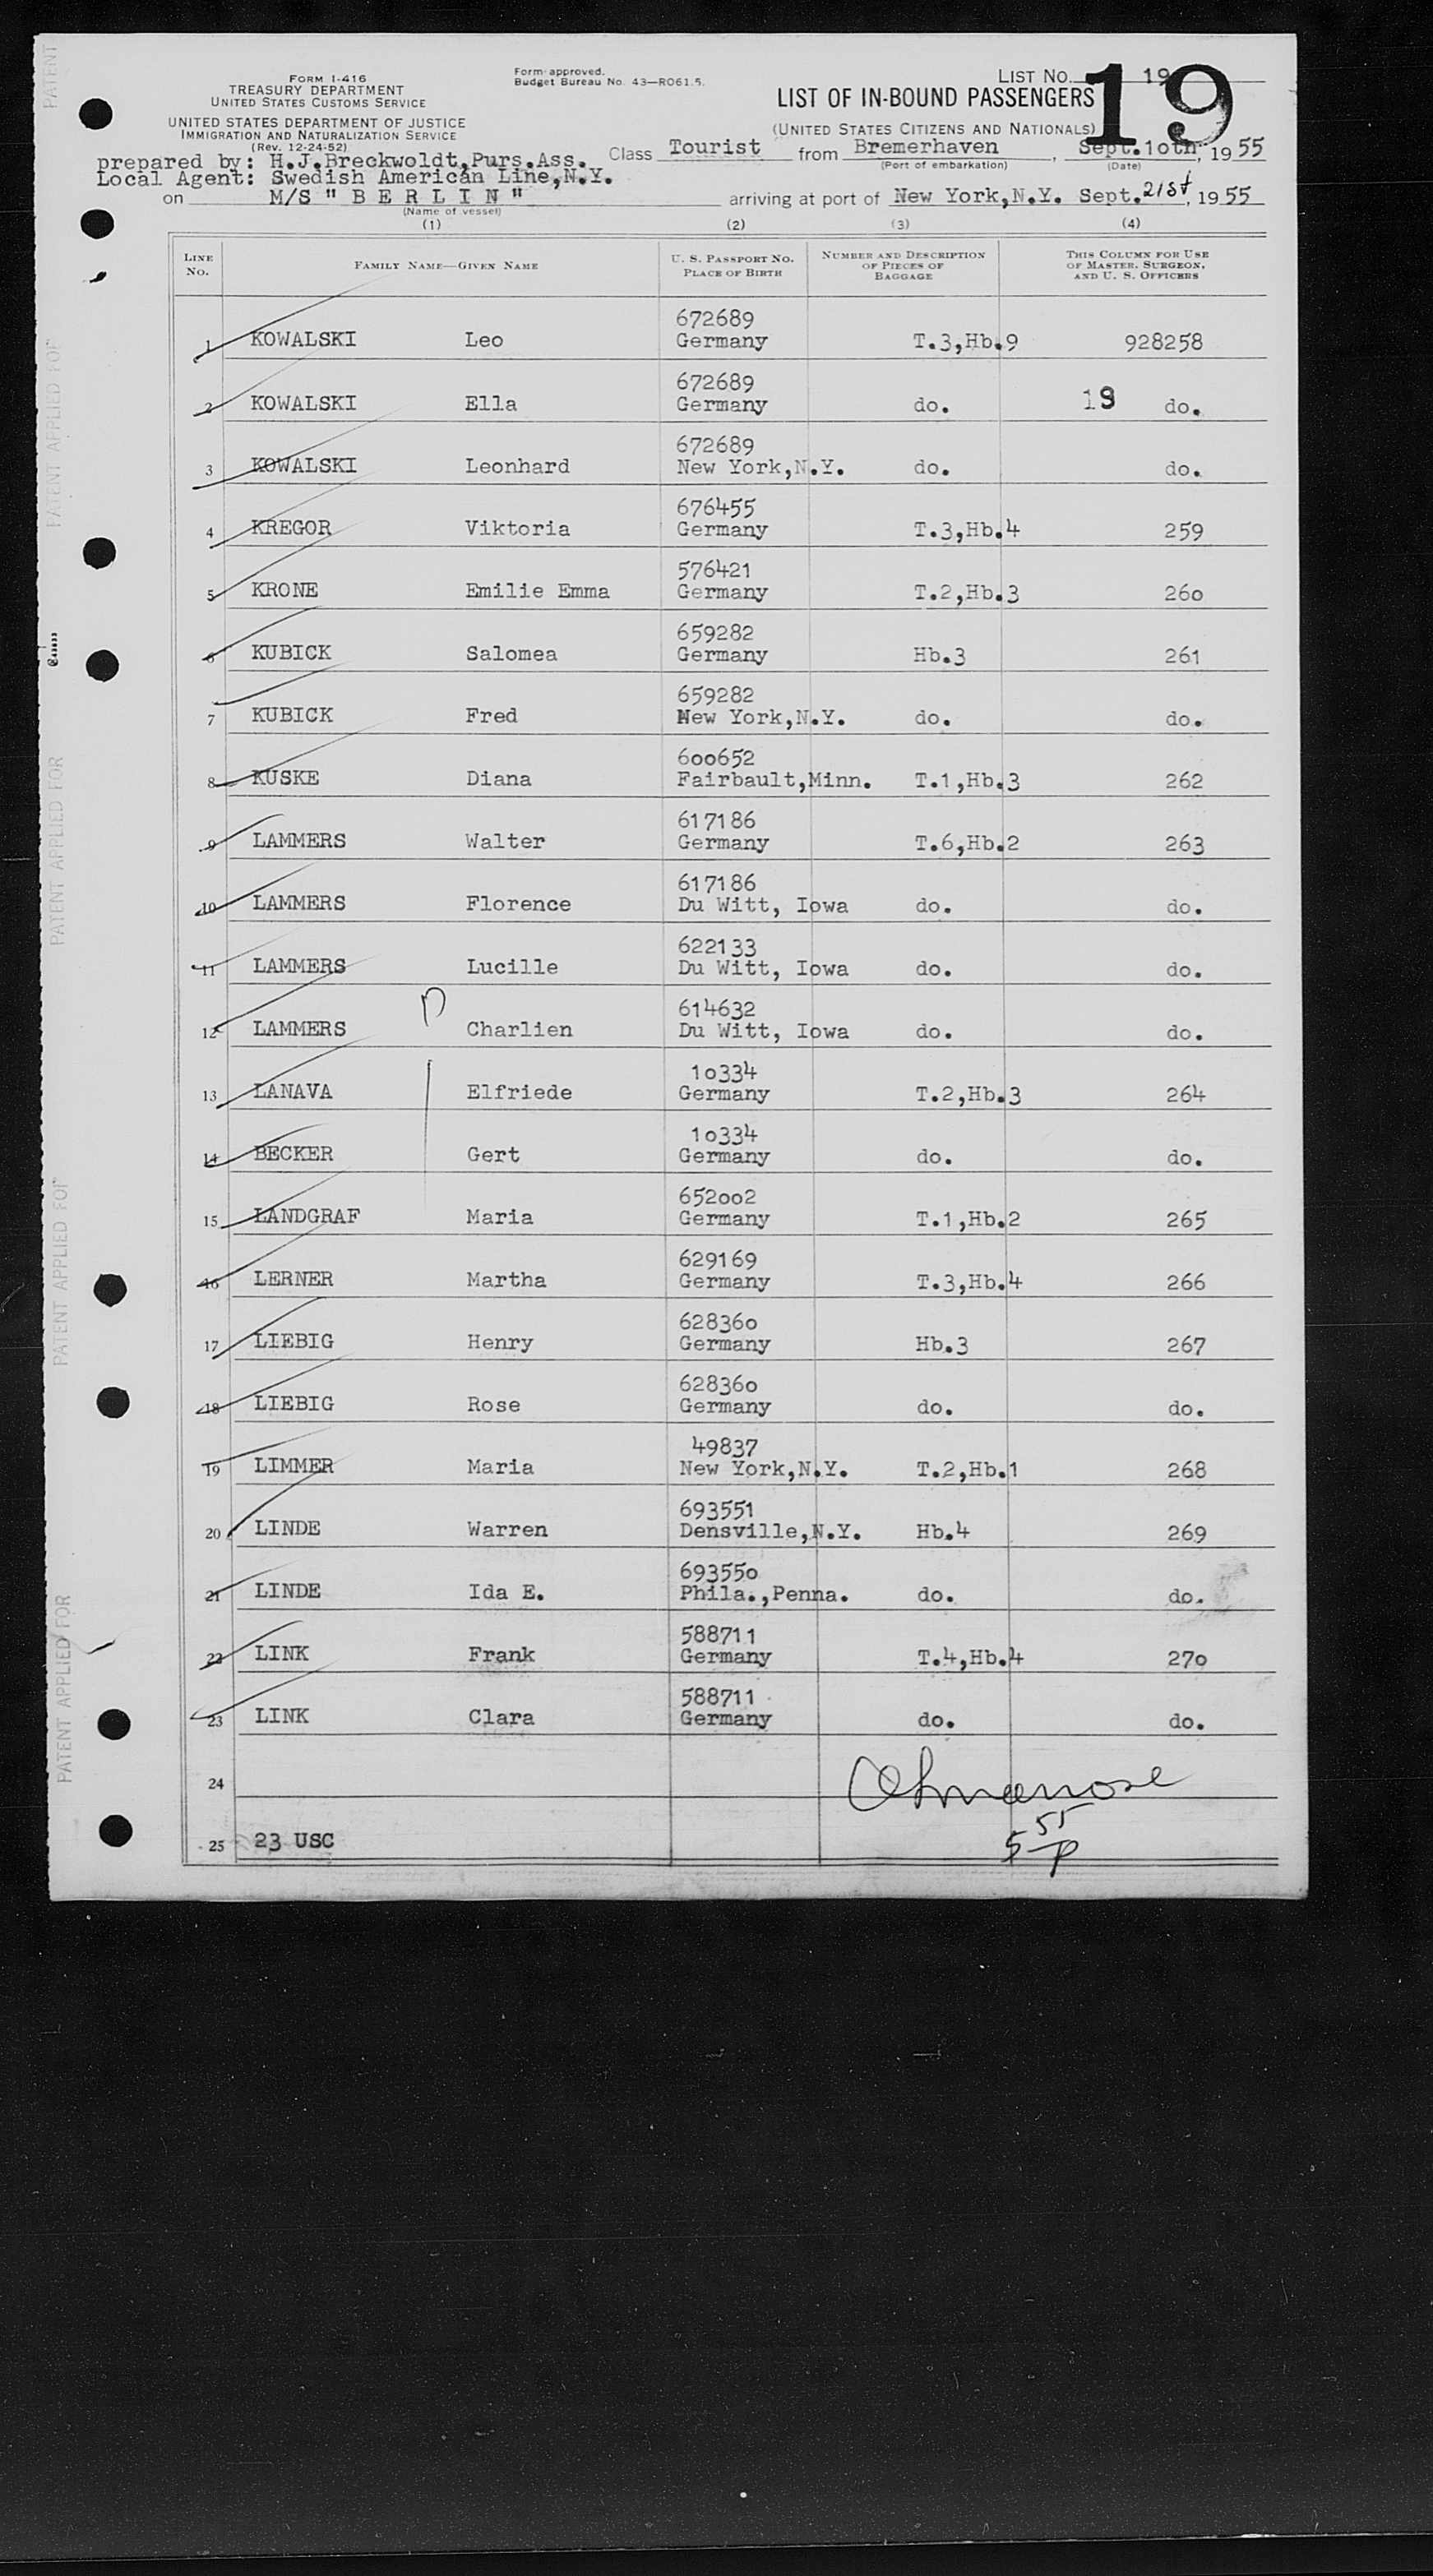 FORM I-416
TREASURY DEPARTMENT
UNITED STATES CUSTOMS SERVICE
UNITED STATES DEPARTMENT OF JUSTICE
IMMIGRATION AND NATURALIZATION SERVICE
(Rev. 12-24-52)
Form approved.
Budget Bureau No. 43—RO61.5.
LIST NO. 19
19
LIST OF IN-BOUND PASSENGERS
(UNITED STATES CITIZENS AND NATIONALS)
prepared by: H.J.Breckwoldt,Purs.Ass. Class Tourist from Bremerhaven, Sept.10th, 1955
(Port of embarkation) (Date)
Local Agent: Swedish American Line,N.Y.
on M/S " B E R L I N " arriving at port of New York,N.Y. Sept.21st, 1955
(Name of vessel)
(1) (2) (3) (4)
LINE NO. FAMILY NAME—GIVEN NAME U. S. PASSPORT NO. PLACE OF BIRTH NUMBER AND DESCRIPTION OF PIECES OF BAGGAGE THIS COLUMN FOR USE OF MASTER, SURGEON, AND U. S. OFFICERS
672689
1 KOWALSKI Leo Germany T.3,Hb.9 928258
672689
2 KOWALSKI Ella Germany do. 19 do.
672689
3 KOWALSKI Leonhard New York,N.Y. do. do.
676455
4 KREGOR Viktoria Germany T.3,Hb.4 259
576421
5 KRONE Emilie Emma Germany T.2,Hb.3 260
659282
6 KUBICK Salomea Germany Hb.3 261
659282
7 KUBICK Fred New York,N.Y. do. do.
600652
8 KUSKE Diana Fairbault,Minn. T.1,Hb.3 262
617186
9 LAMMERS Walter Germany T.6,Hb.2 263
617186
10 LAMMERS Florence Du Witt, Iowa do. do.
622133
11 LAMMERS Lucille Du Witt, Iowa do. do.
614632
12 LAMMERS Charlien Du Witt, Iowa do. do.
10334
13 LANAVA Elfriede Germany T.2,Hb.3 264
10334
14 BECKER Gert Germany do. do.
652002
15 LANDGRAF Maria Germany T.1,Hb.2 265
629169
16 LERNER Martha Germany T.3,Hb.4 266
628360
17 LIEBIG Henry Germany Hb.3 267
628360
18 LIEBIG Rose Germany do. do.
49837
19 LIMMER Maria New York,N.Y. T.2,Hb.1 268
693551
20 LINDE Warren Densville,N.Y. Hb.4 269
693550
21 LINDE Ida E. Phila.,Penna. do. do.
588711
22 LINK Frank Germany T.4,Hb.4 270
588711
23 LINK Clara Germany do. do.
24
25 23 USC
PATENT
PATENT APPLIED FOR
PATENT APPLIED FOR
PATENT APPLIED FOR
PATENT APPLIED FOR